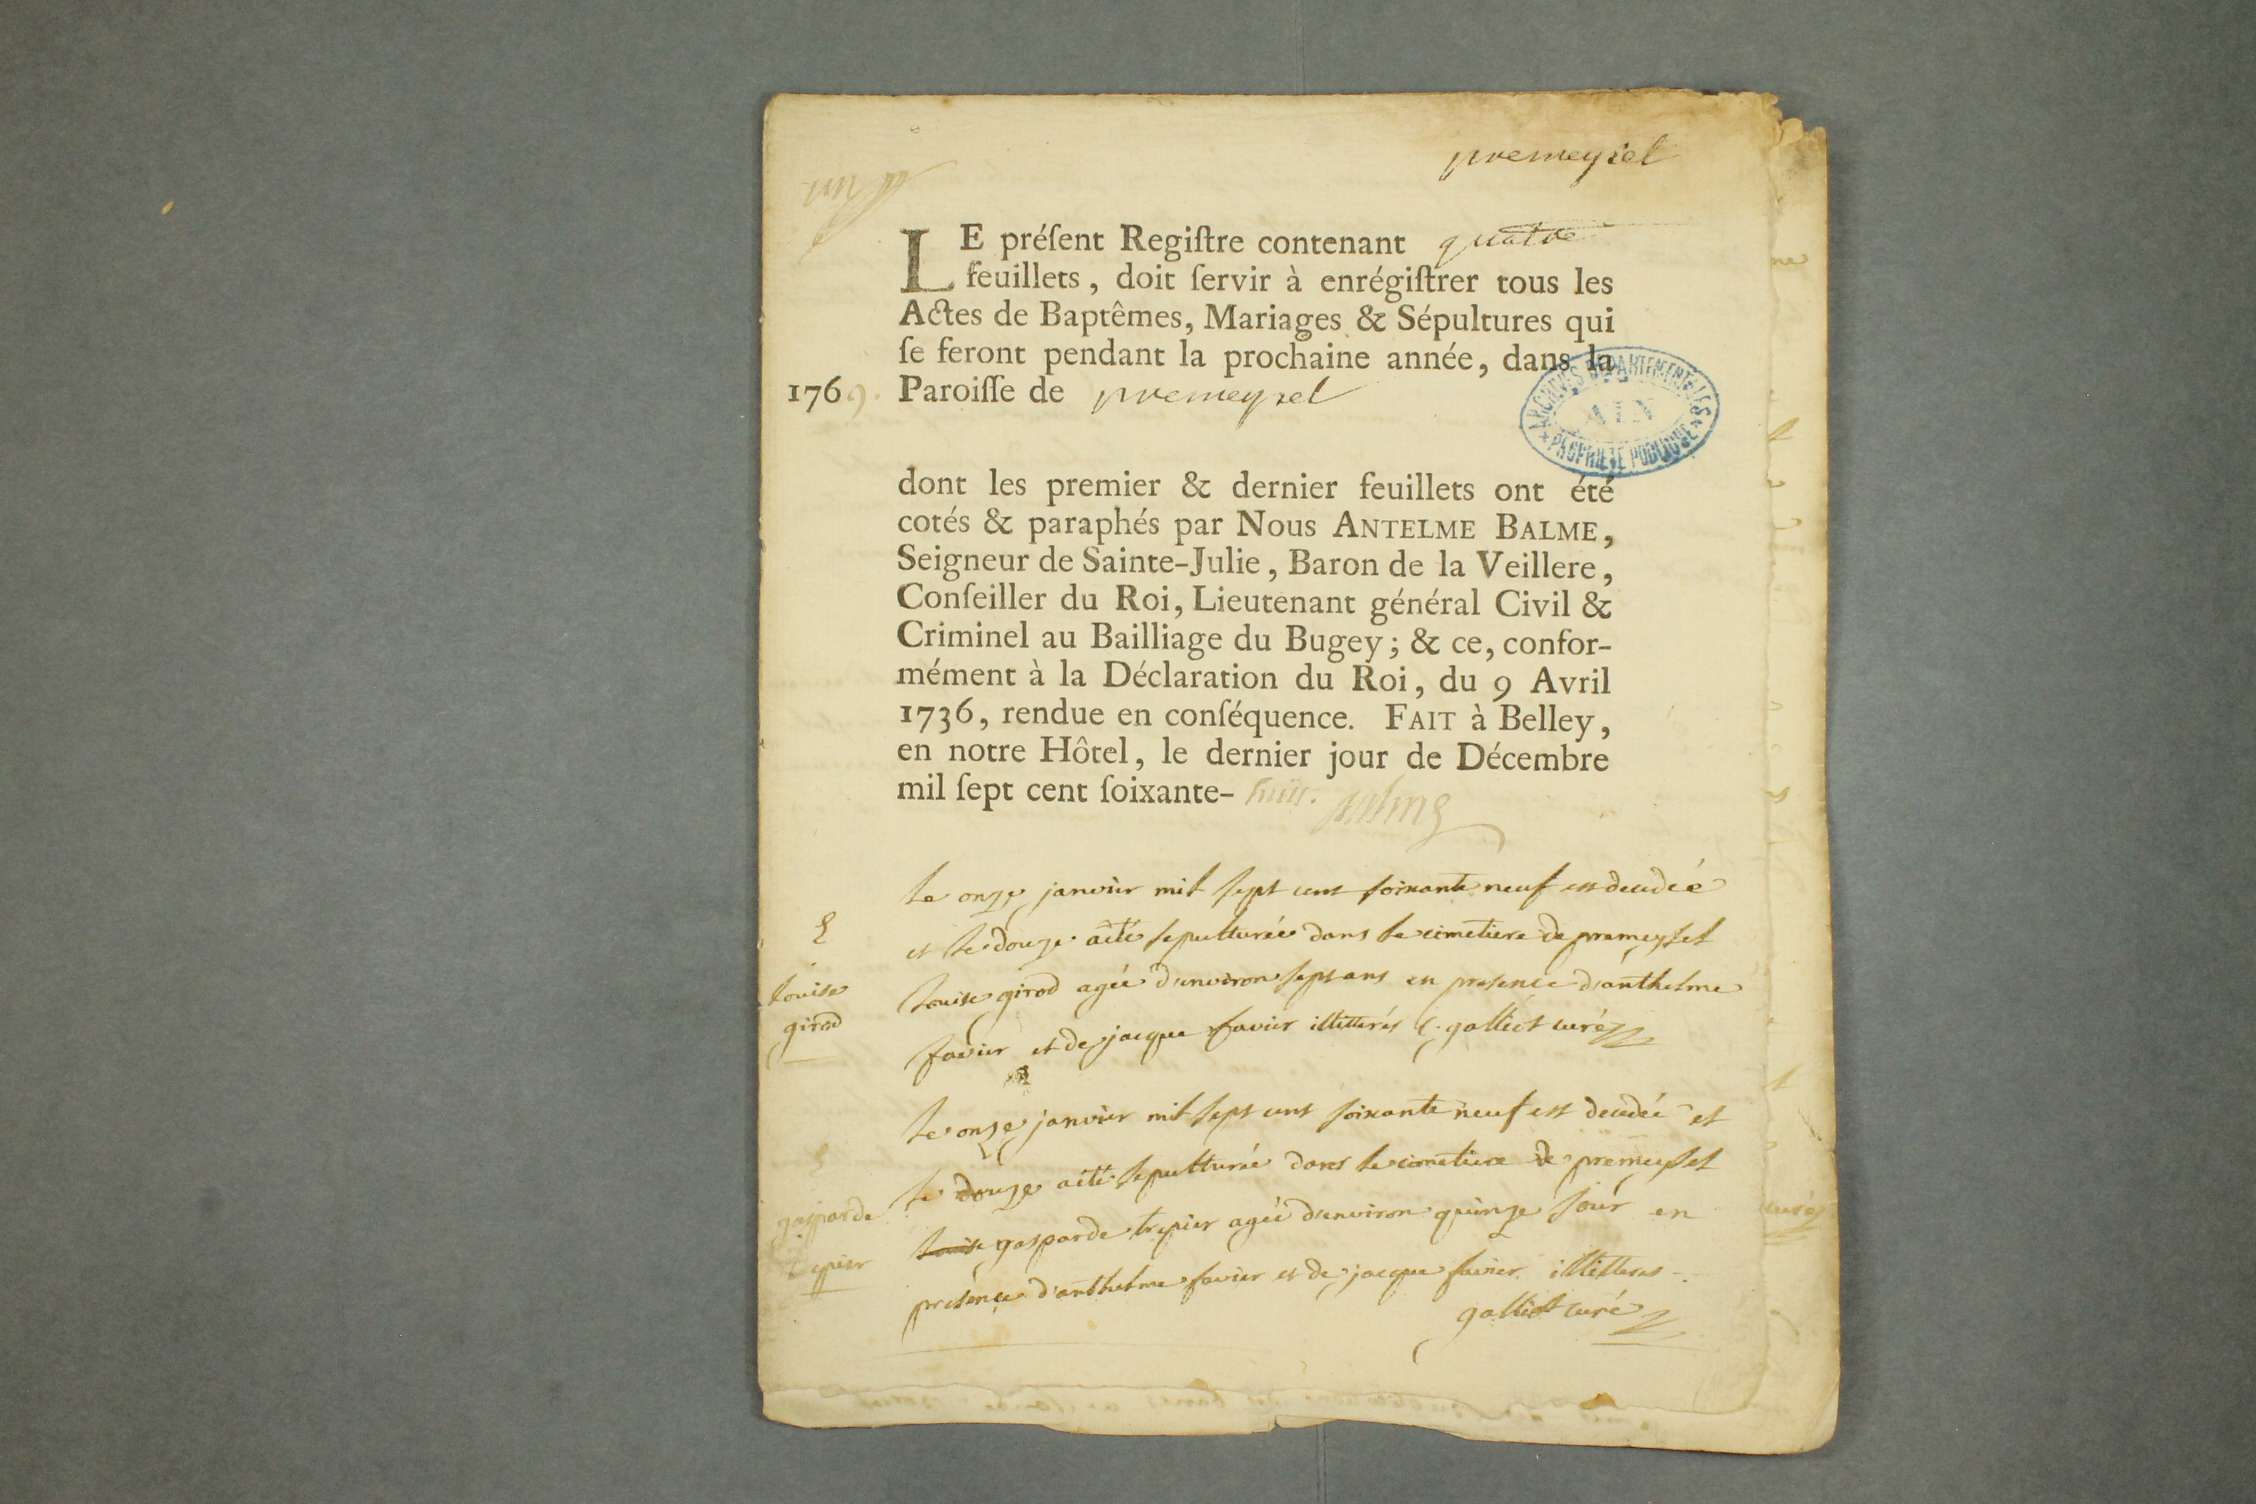 premeyzel
un
LE préſent Regiſtre contenant quatre
feuillets, doit ſervir à enrégiſtrer tous les
Actes de Baptêmes, Mariages & Sépultures qui
ſe feront pendant la prochaine année, dans la
1769. Paroiſſe de premeyzel
ARCHIVES DÉPARTEMENTALES
AIN
* PROPRIÉTÉ PUBLIQUE *
dont les premier & dernier feuillets ont été
cotés & paraphés par Nous ANTELME BALME,
Seigneur de Sainte-Julie, Baron de la Veillere,
Conſeiller du Roi, Lieutenant général Civil &
Criminel au Bailliage du Bugey; & ce, confor-
mément à la Déclaration du Roi, du 9 Avril
1736, rendue en conſéquence. FAIT à Belley,
en notre Hôtel, le dernier jour de Décembre
mil ſept cent ſoixante- huit. Balme
Le onze janvier mil sept cent soixante neuf est decedéé
et le douze aété sepulturée dans le cimetiere de premeyzel
louise
girod
Louise girod agée d'environ sept ans en presence d'anthelme
favier et de jacque favier illitterés galliot curé
Le onze janvier mil sept cent soixante neuf est decedée et
le douze aété sepulturée dans le cimetiere de premeyzel
gasparde
trepier
Louise gasparde trepier agée d'environ quinze jour en
presence d'anthelme favier et de jacque favier illitteres
galliot curé